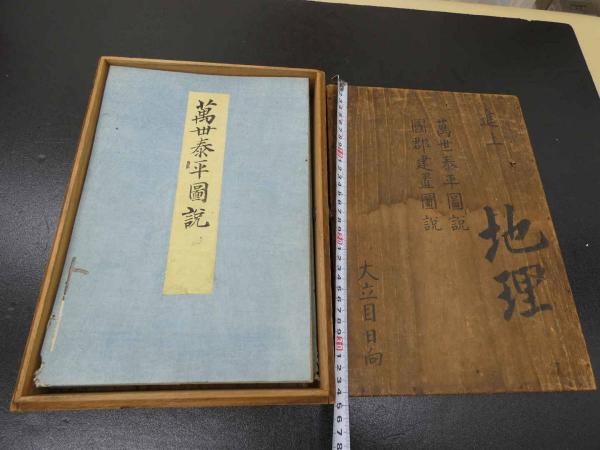 萬世泰平圖説
進上
萬世泰平圖説
國郡建置圖説
地理
大立目日向